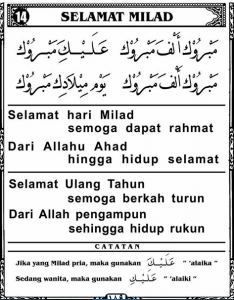 14 SELAMAT MILAD
مَبْرُوْك أَلْف مَبْرُوْك عَلَيْكِ مَبْرُوْك
مَبْرُوْك أَلْف مَبْرُوْك يَوْم مِيْلَادِك مَبْرُوْك
Selamat hari Milad
semoga dapat rahmat
Dari Allahu Ahad
hingga hidup selamat
Selamat Ulang Tahun
semoga berkah turun
Dari Allah pengampun
sehingga hidup rukun
CATATAN
Jika yang Milad pria, maka gunakan عَلَيْكَ " 'alaika "
Sedang wanita, maka gunakan عَلَيْكِ " 'alaiki "